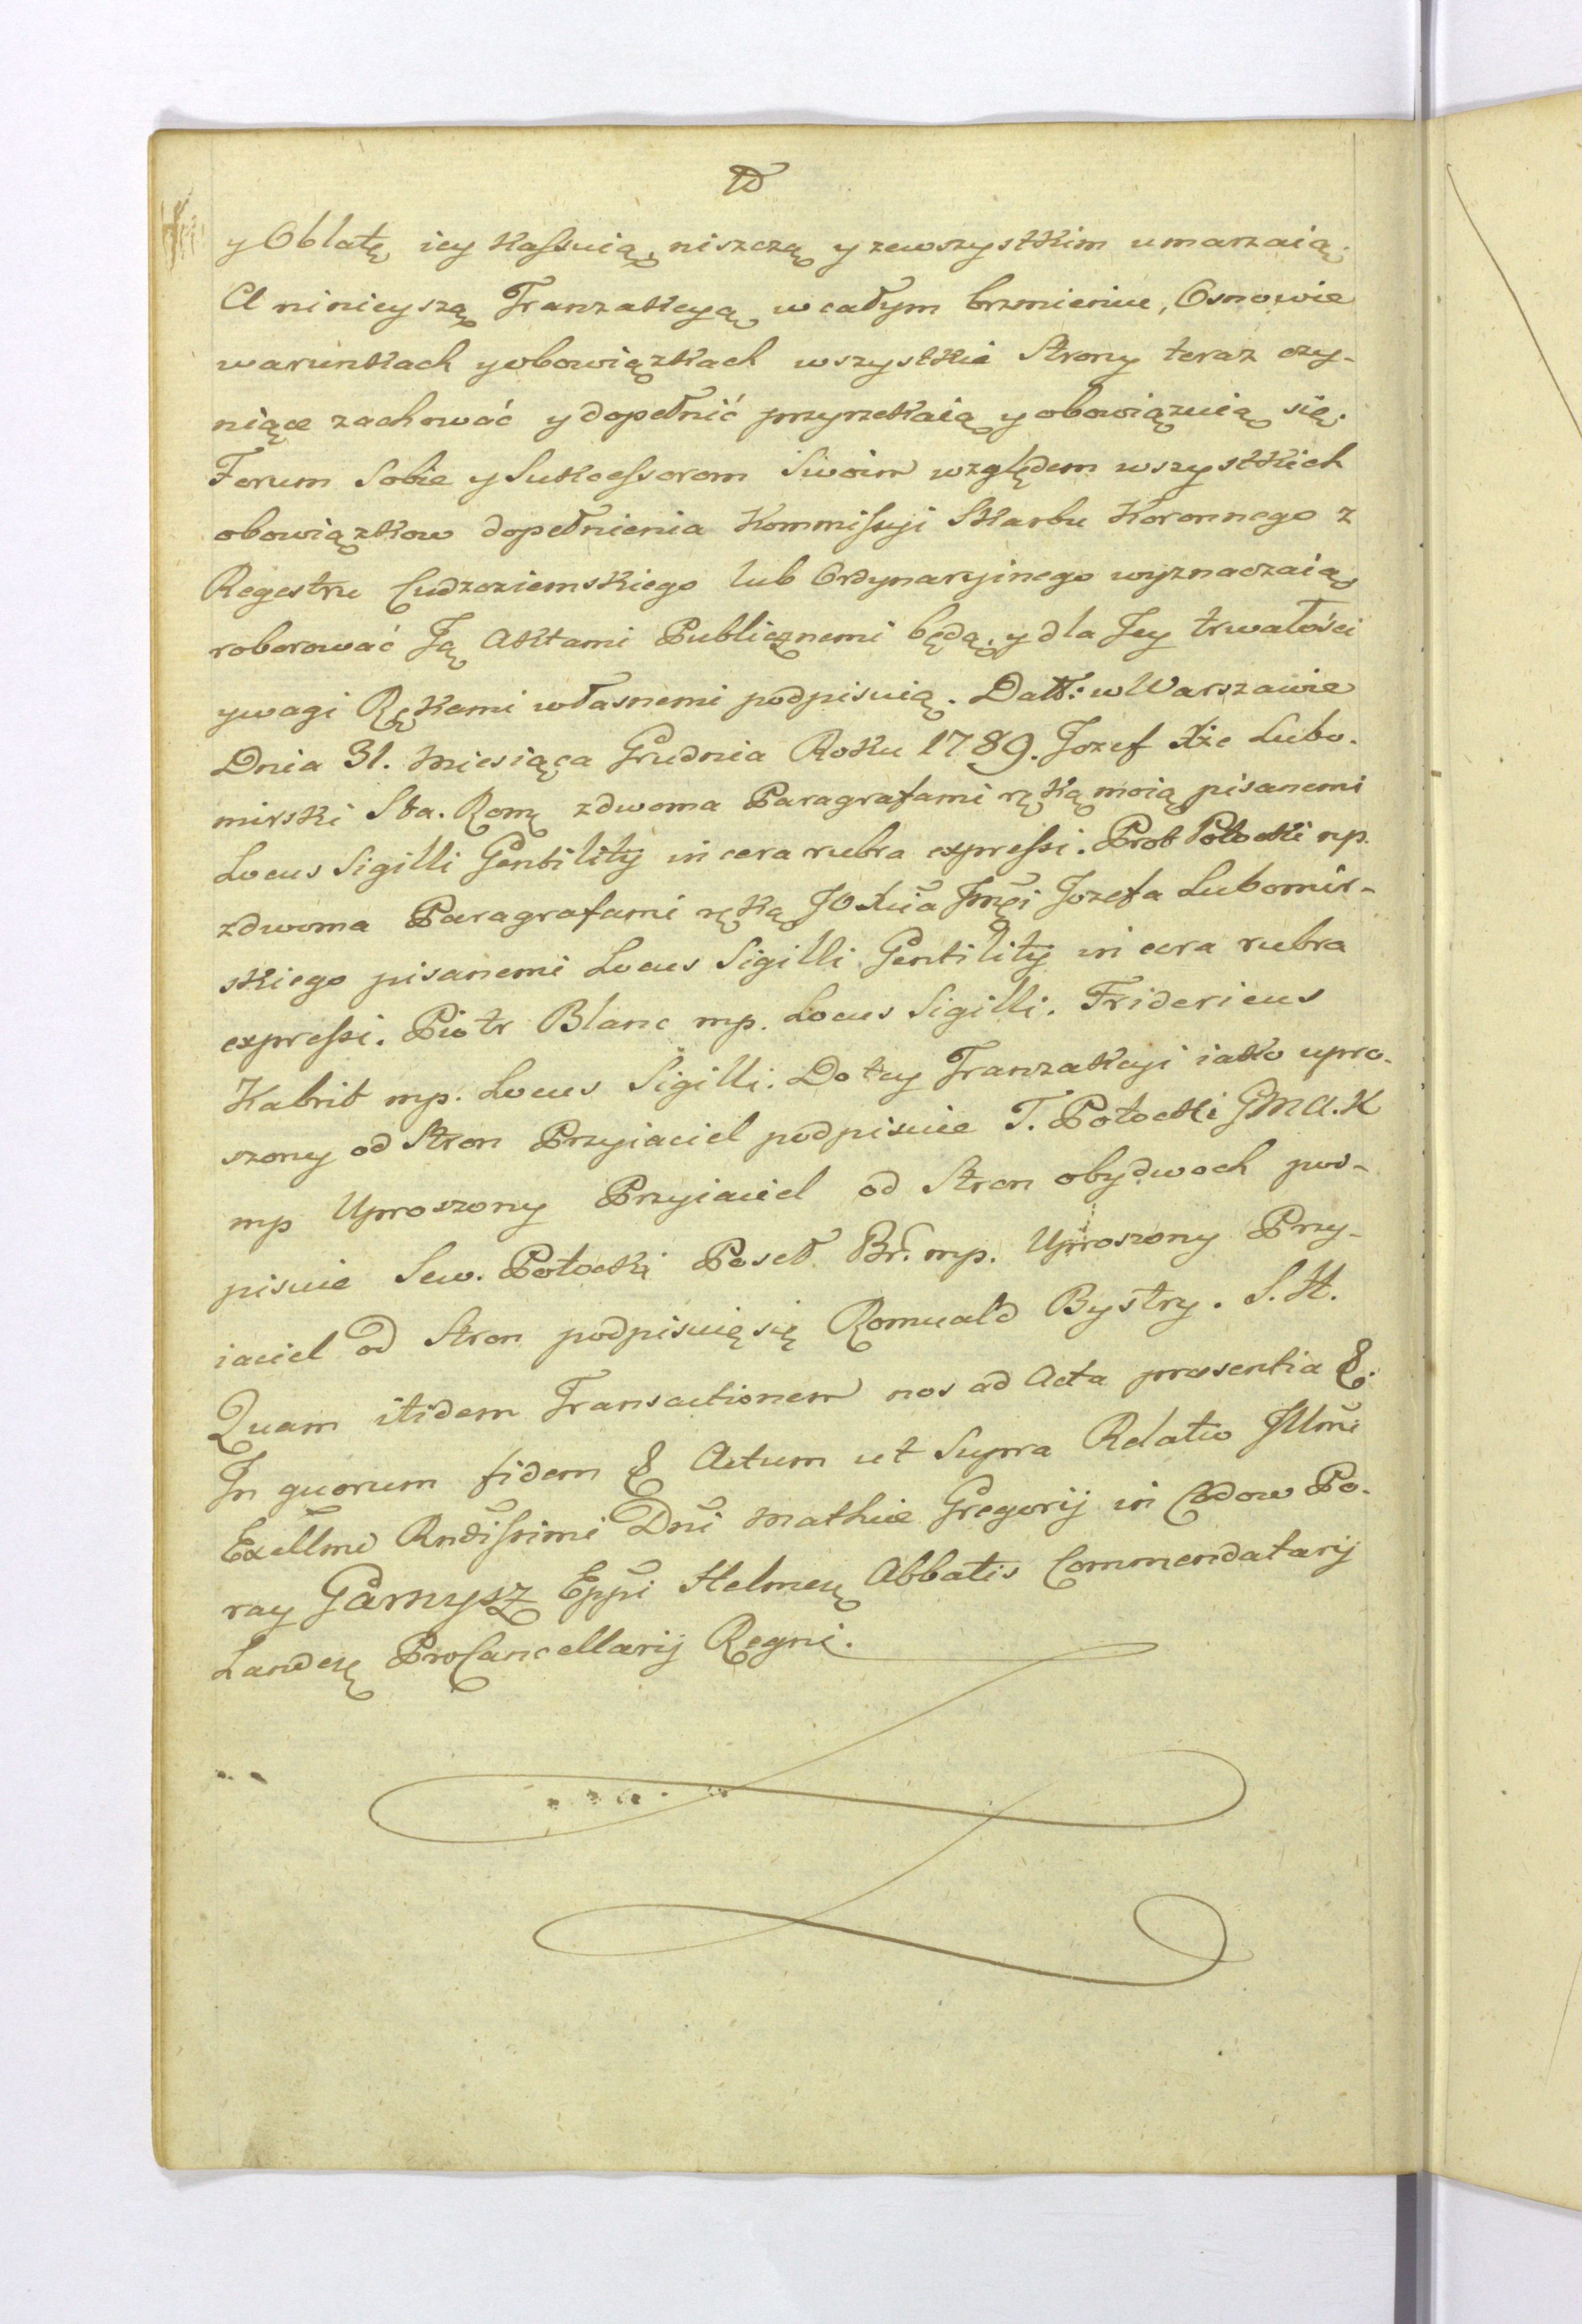 y Oblatę iey kassuią, niszczą y zewszystkim umarzaią.
A ninieyszą Tranzakcyą w całym brzmieniu, Osnowie
warunkach y obowiązkach wszystkie Strony teraz czy-
niące zachować y dopełnić przyrzekaią y obowiązuią się.
Forum Sobie y Sukcessorom Swoim względem wszystkich
obowiązkow dopełnienia Kommissyi Skarbu Koronnego z
Regestru Cudzoziemskiego lub Ordynaryinego wyznaczaią
roborować Ją Aktami Publicznemi będą, y dla Jey trwałości
y wagi Rękami własnemi podpisuią. Datt: w Warszawie
Dnia 31. Miesiąca Grudnia Roku 1789. Jozef Xże Lubo-
mirski Sta. Romę zdwoma Paragrafami ręką moią pisanemi
Locus Sigilli Gentilitỹ in cera rubra expressi. Prot Potocki mp.
zdwoma Paragrafami ręką JO Xcia Jmći Jozefa Lubomir-
skiego pisanemi Locus Sigilli Gentilitỹ in cera rubra
expressi. Piotr Blanc mp. Locus Sigilli. Fridericus
Kabrit mp. Locus Sigilli. Do tey Tranzakcyi iako upro-
szony od Stron Przyiaciel podpisuie T. Potocki GMA.K
mp Uproszony Przyiaciel od Stron obydwoch pod-
pisuie Sew. Potocki Poseł Br. mp. Uproszony Przy-
iaciel od Stron podpisuię się Romuald Bystry. S.H.
Quam itidem Transactionem nos ad Acta præsentia &.
In quorum fidem & Actum ut Supra Relatio Jllmi
Exellmi Rndissimi Dni Mathiæ Gregorij in Po-
ray Garnysz Eppi Helmeń Abbatis Commendatarij
Landeń ProCancellarij Regni.